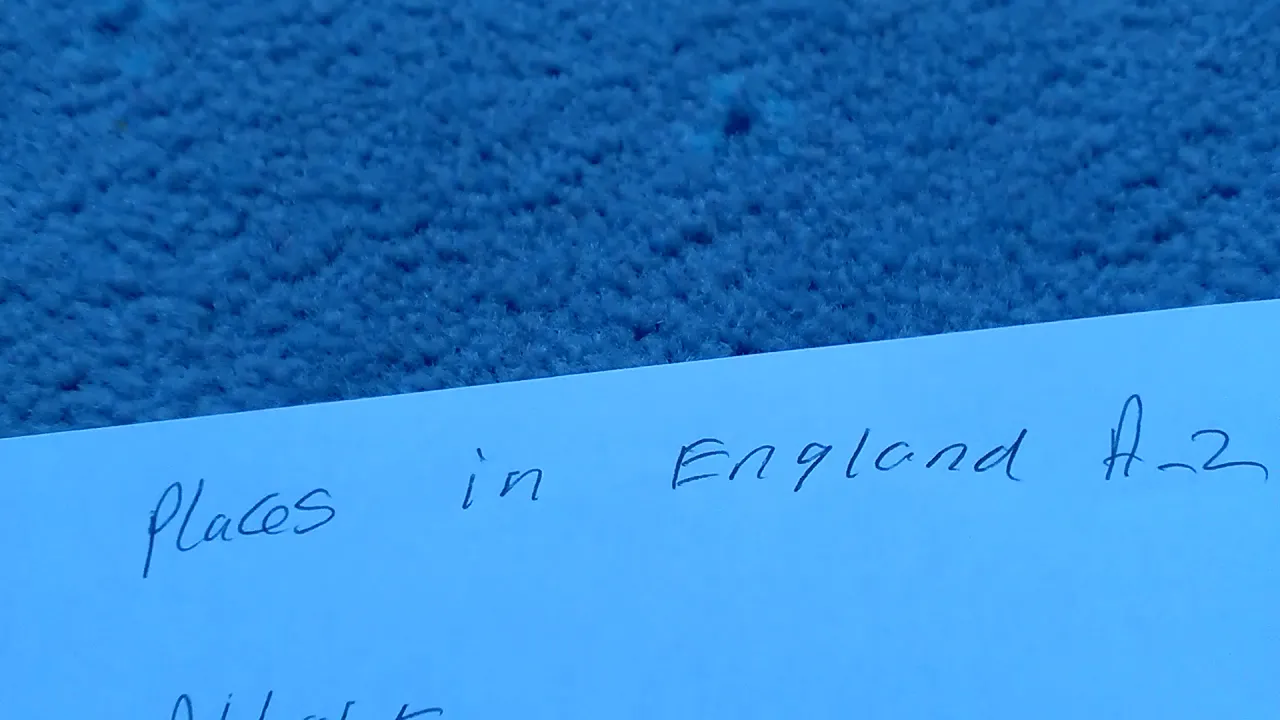 Places in England A-Z